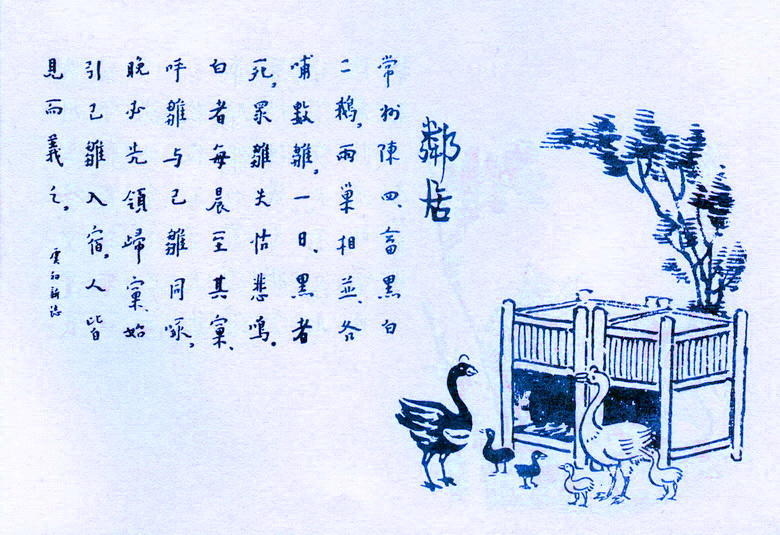 鄰居
常州陳四、畜黑白
二鵝,兩巢相並、各
哺數雛。一日、黑者
死,眾雛失怙悲鳴。
白者每晨至其窠、
呼雛与己雛同啄,
晚必先領歸窠、始
引己雛入宿。人皆
見而義之。
虞初新志